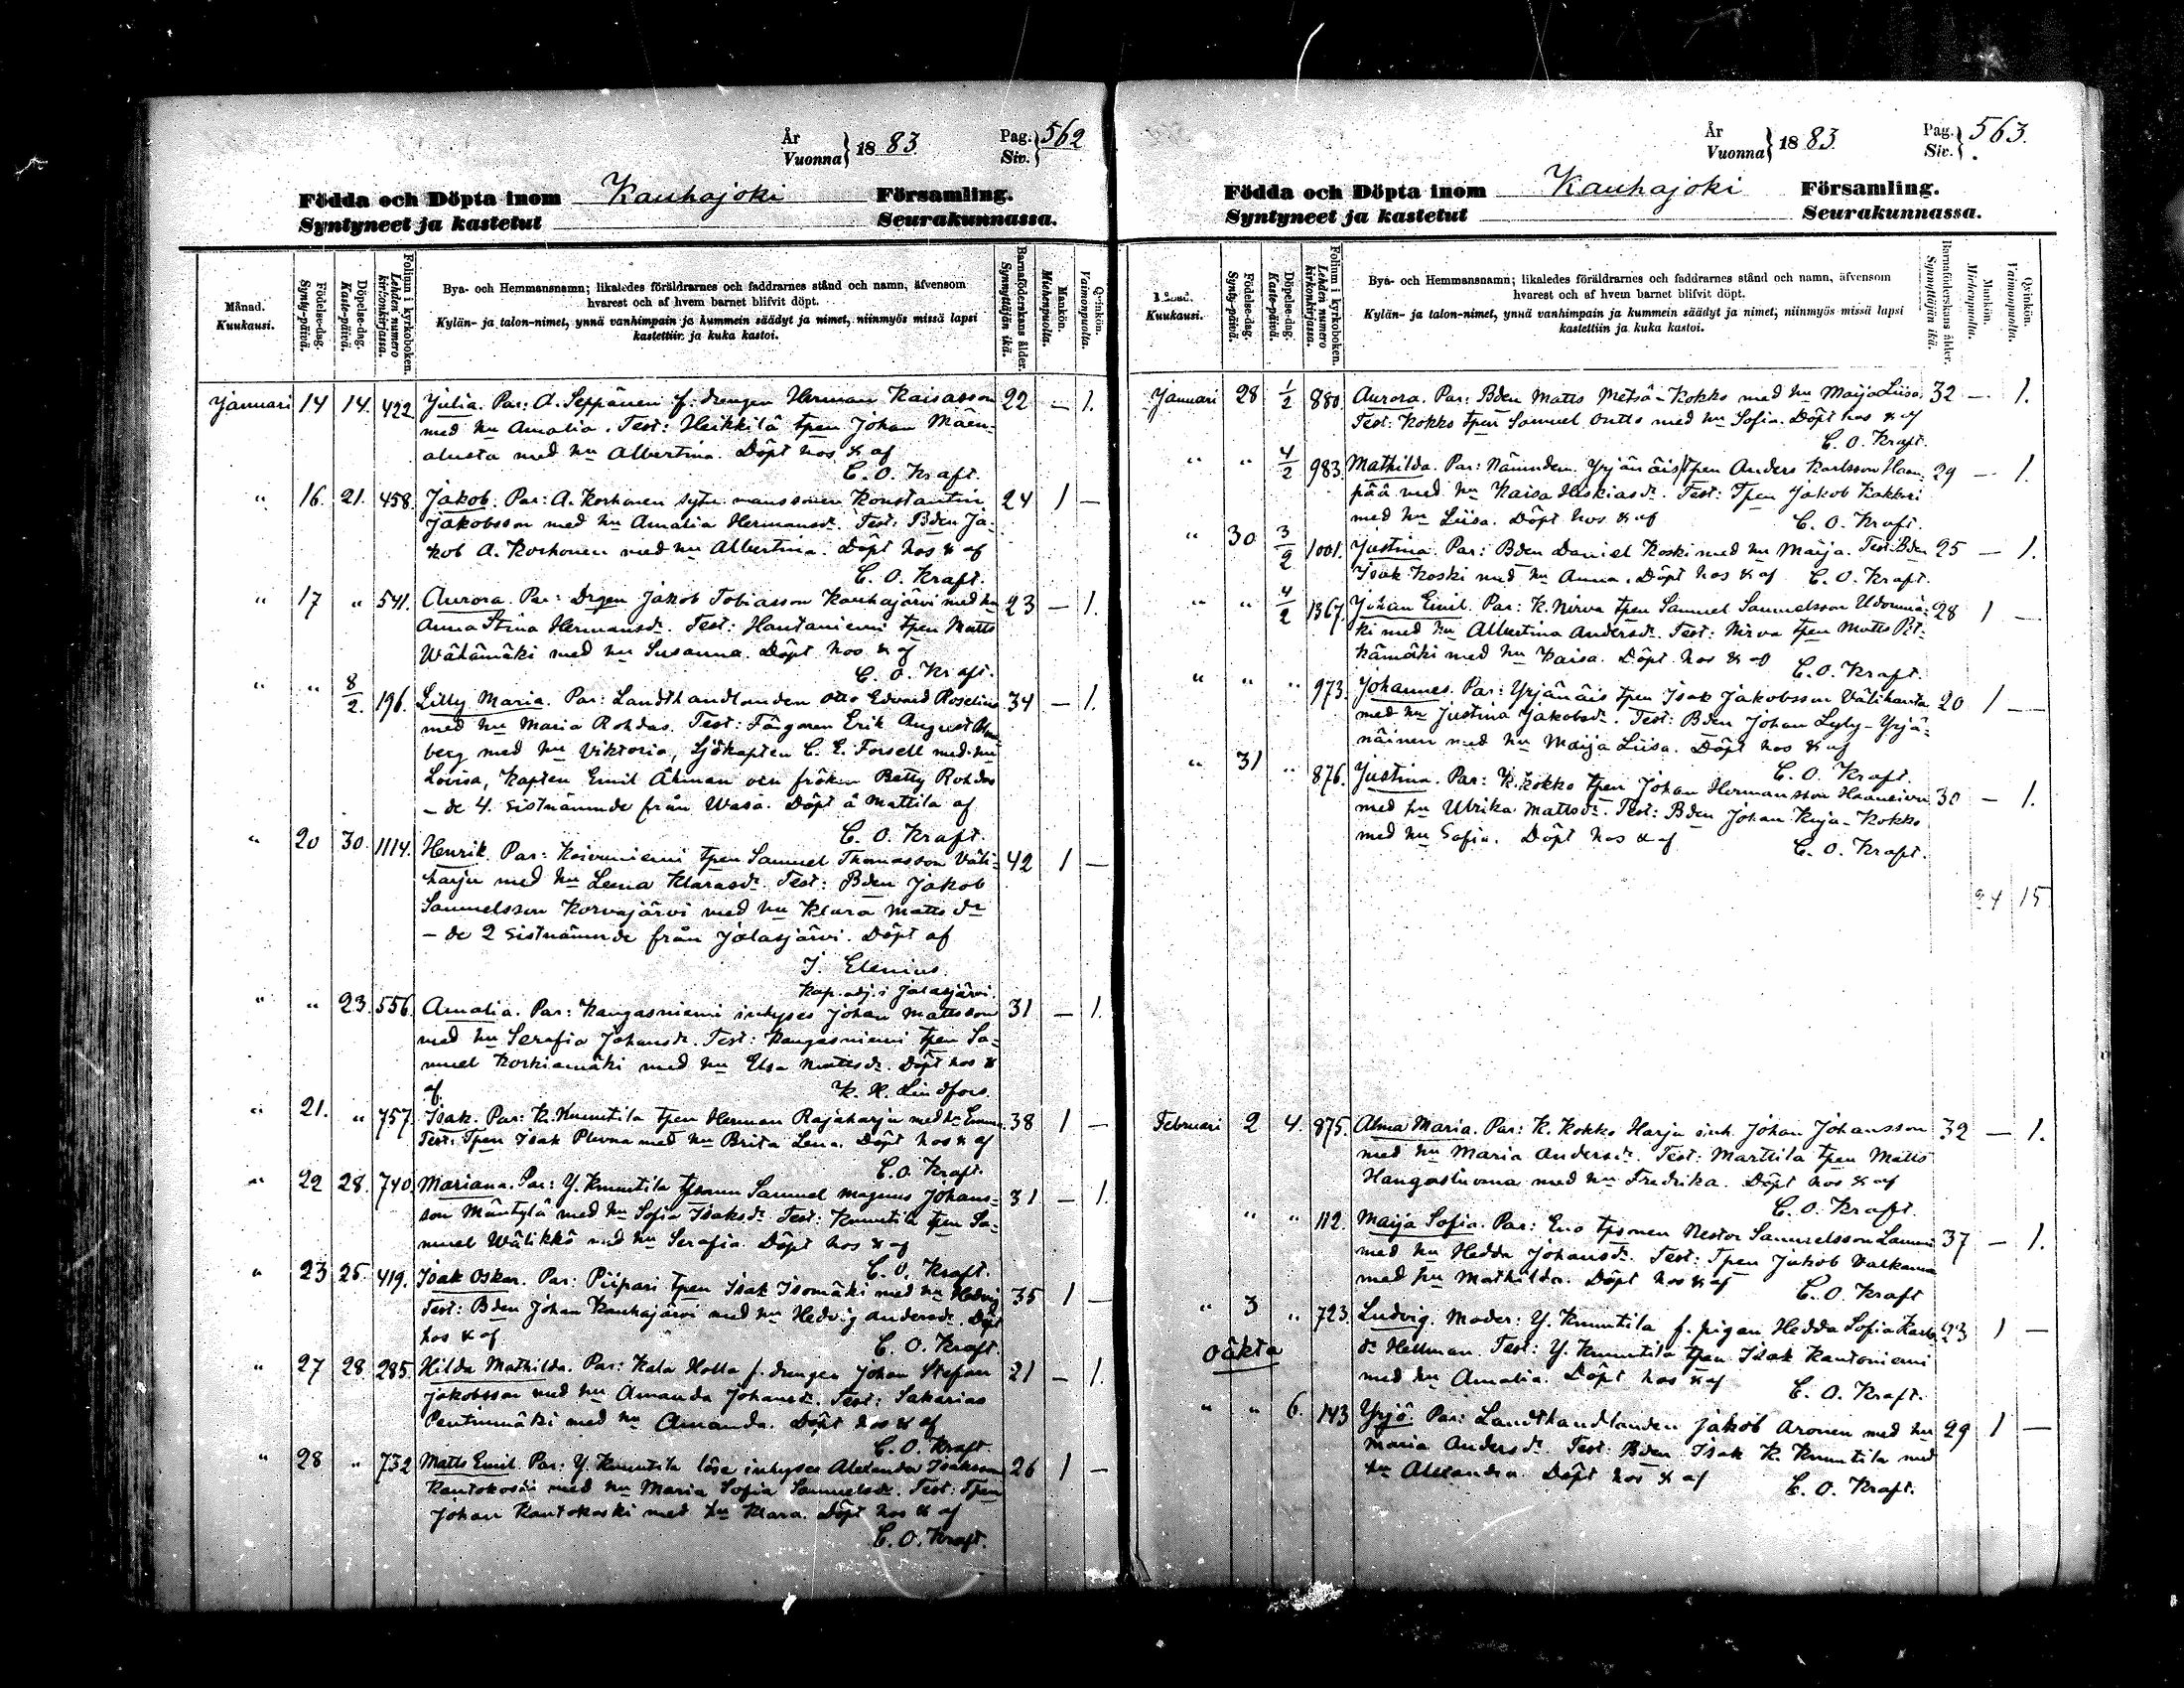 År
Vuonna } 1883.
Pag.
Siv. } 562
Födda och Döpta inom Kauhajoki Församling.
Syntyneet ja kastetut Seurakunnassa.
Månad.
Kuukausi.
Födelse-dag.
Synty-päivä.
Döpelse-dag.
Kaste-päivä.
Folium i kyrkoboken.
Lehden numero kirkonkirjassa.
Bya- och Hemmansnamn; likaledes föräldrarnes och faddrarnes stånd och namn, äfvensom
hvarest och af hvem barnet blifvit döpt.
Kylän- ja talon-nimet, ynnä vanhimpain ja kummein säädyt ja nimet, niinmyös missä lapsi
kastettiin ja kuka kastoi.
Barnaföderskans ålder.
Synnyttäjän ikä.
Mankön.
Miehenpuolta.
Qvinkön.
Vaimonpuolta.
Januari 14 14. 422 Julia. Par: A. Seppänen f. drengen Herman Kaisasson 22 — 1.
med hu Amalia. Test: Heikkilä tpen Johan Mäen-
alusta med hu Albertina. Döpt hos & af
C. O. Kraft.
" 16. 21. 458. Jakob. Par: A. Korhonen sytn. manssonen Konstantin 24 1 —
Jakobsson med hu Amalia Hermansdr. Test: Bden Ja-
kob A. Korhonen med hu Albertina. Döpt hos & af
C. O. Kraft.
" 17 " 541. Aurora. Par: Drgen Jakob Tobiasson Kauhajärvi med hu 23 — 1.
Anna Stina Hermansdr. Test: Hautaniemi tpen Matts
Wätämäki med hu Susanna. Döpt hos & af
C. O. Kraft.
" " 8/2. 196. Lilly Maria. Par: Landthandlanden Otto Edvard Roselius 34 — 1.
med hu Maria Rohdas. Test: Färgaren Erik August
berg med hu Viktoria, Sjökapten C. E. Forsell med hu
Lovisa, Kapten Emil Åhman och fröken Betty Rohdas
— de 4. sistnämnde från Wasa. Döpt å Mattila af
C. O. Kraft.
" 20 30. 1114. Henrik. Par: Koivuniemi tpen Samuel Thomasson Väli- 42 1 —
harju med hu Leena Klarasdr. Test: Bden Jakob
Samuelsson Korvajärvi med hu Klara Mattsdr
— de 2 sistnämnde från Jalasjärvi. Döpt af
J. Elenius.
Kap. adj. i Jalasjärvi.
" " 23. 556. Amalia. Par: Kangasniemi inhyses Johan Mattsson 31 — 1.
med hu Serafia Johansdr. Test: Kangasniemi tpen Sa-
muel Korkiamäki med hu Elsa Mattsdr. Döpt hos &
af. K. H. Lindfors.
" 21. " 757. Isak. Par: K. Knuutila tpen Herman Rajaharju med hu Emma. 38 1 —
Test: Tpen Isak Plevna med hu Brita Lena. Döpt hos & af
C. O. Kraft.
" 22 28. 740. Mariana. Par: Y. Knuutila tpsonen Samuel Magnus Johans- 31 — 1.
son Mäntylä med hu Sofia Isaksdr. Test: Knuutila tpen Sa-
muel Wälikkö med hu Serafia. Döpt hos & af
C. O. Kraft.
" 23 25. 419. Isak Oskar. Par: Piipari tpen Isak Isomäki med hu Hedvig 35 1 —
Test: Bden Johan Kauhajärvi med hu Hedvig Andersdr. Döpt
hos & af C. O. Kraft.
" 27 28. 285. Hilda Mathilda. Par: Kala Holla f. drengen Johan Stefan 21 — 1.
Jakobsson med hu Amanda Johansdr. Test: Sakarias
Pentinmäki med hu Amanda. Döpt hos & af
C. O. Kraft.
" 28 " 732 Matts Emil. Par: Y. Knuutila löse inhyses Alexander Isaksson 26 1 —
Kantokoski med hu Maria Sofia Samuelsdr. Test: Tpen
Johan Kantokoski med hu Klara. Döpt hos & af
C. O. Kraft.
År
Vuonna } 1883.
Pag.
Siv. } 563.
Födda och Döpta inom Kauhajoki Församling.
Syntyneet ja kastetut Seurakunnassa.
Kuukausi.
Födelse-dag.
Synty-päivä.
Döpelse-dag.
Kaste-päivä.
Folium i kyrkoboken.
Lehden numero kirkonkirjassa.
Bya- och Hemmansnamn; likaledes föräldrarnes och faddrarnes stånd och namn, äfvensom
hvarest och af hvem barnet blifvit döpt.
Kylän- ja talon-nimet, ynnä vanhimpain ja kummein säädyt ja nimet, niinmyös missä lapsi
kastettiin ja kuka kastoi.
Barnaföderskans ålder.
Synnyttäjän ikä.
Mankön.
Miehenpuolta.
Qvinkön.
Vaimonpuolta.
Januari 28 1/2 880. Aurora. Par: Bden Matts Metsä-Kokko med hu Maija Liisa. 32 — 1.
Test: Kokko tpen Samuel Outto med hu Sofia. Döpt hos & af
C. O. Kraft.
" " 4/2 983. Mathilda. Par: Nämndem. Yrjänäis/tpen Anders Karlsson Haa- 29 — 1.
pää med hu Kaisa Heskiasdr. Test: Tpen Jakob Kakkuri
med hu Liisa. Döpt hos & af C. O. Kraft.
" 30 3/2 1001. Justina. Par: Bden Daniel Koski med hu Maija. Test: Bden 25 — 1.
Isak Koski med hu Anna. Döpt hos & af C. O. Kraft.
" " 4/2 1367. Johan Emil. Par: K. Nirva tpen Samuel Samuelsson 28 1 —
ki med hu Albertina Andersdr. Test: Nirva tpen Matts Pit-
kämäki med hu Kaisa. Döpt hos & af C. O. Kraft.
" " " 973. Johannes. Par: Yrjänäis tpen Isak Jakobsson Välihauta 20 1 —
med hu Justina Jakobsdr. Test: Bden Johan Lyly-Yrjä-
näinen med hu Maija Liisa. Döpt hos & af
C. O. Kraft.
" 31 " 876. Justina. Par: K. Kokko tpen Johan Hermansson 30 — 1.
med hu Ulrika Mattsdr. Test: Bden Johan Kuja-Kokko
med hu Sofia. Döpt hos & af C. O. Kraft.
24 15
Februari 2 4. 875. Alma Maria. Par: K. Kokko Harju inh. Johan Johansson 32 — 1.
med hu Maria Andersdr. Test: Marttila tpen Matts
Hangasluoma med hu Fredrika. Döpt hos & af
C. O. Kraft.
" " " 112. Maija Sofia. Par: Eno tpsonen Nestor Samuelsson 37 — 1.
med hu Hedda Johansdr. Test: Tpen Jakob Valkama
med hu Mathilda. Döpt hos & af C. O. Kraft
" 3 " 723. Ludvig. Moder: Y. Knuutila f. pigan Hedda Sofia Karls 23 1 —
oäkta dr Hellman. Test: Y. Knuutila tpen Isak Kantoniemi
med hu Amalia. Döpt hos & af C. O. Kraft.
" " 6. 143 Yrjö. Par: Landthandlanden Jakob Aronen med hu 29 1 —
Maria Andersdr. Test: Bden Isak K. Knuutila med
hu Alexandra. Döpt hos & af C. O. Kraft.